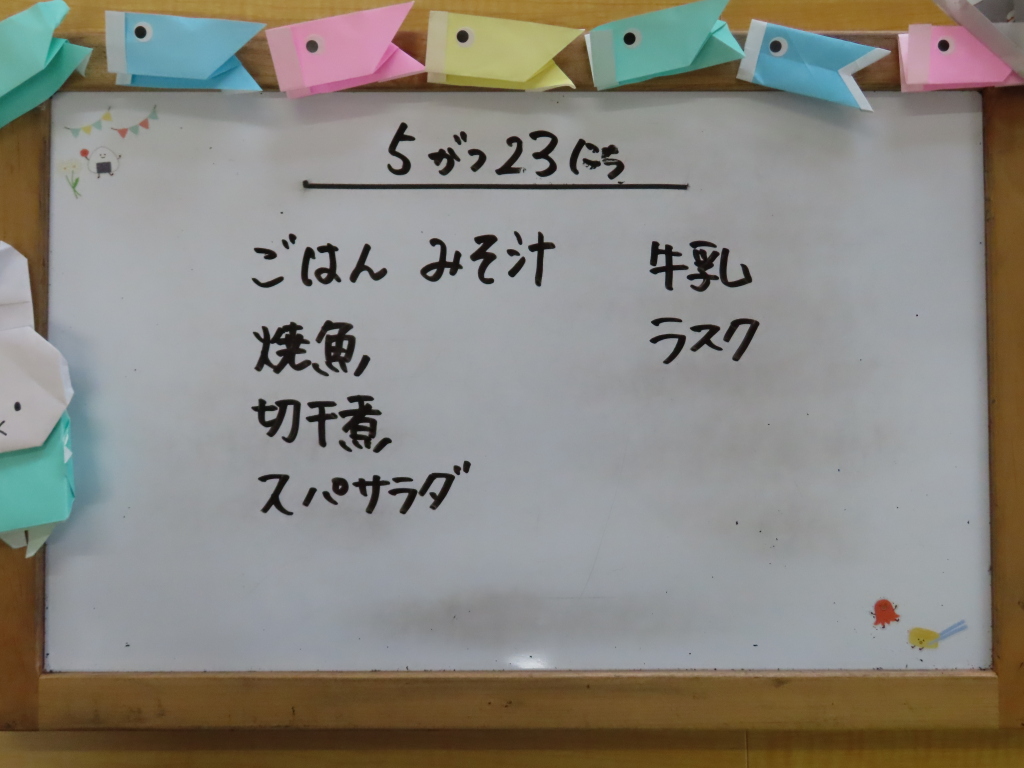 5がつ23にち
ごはん みそ汁
焼魚
切干煮
スパサラダ
牛乳
ラスク